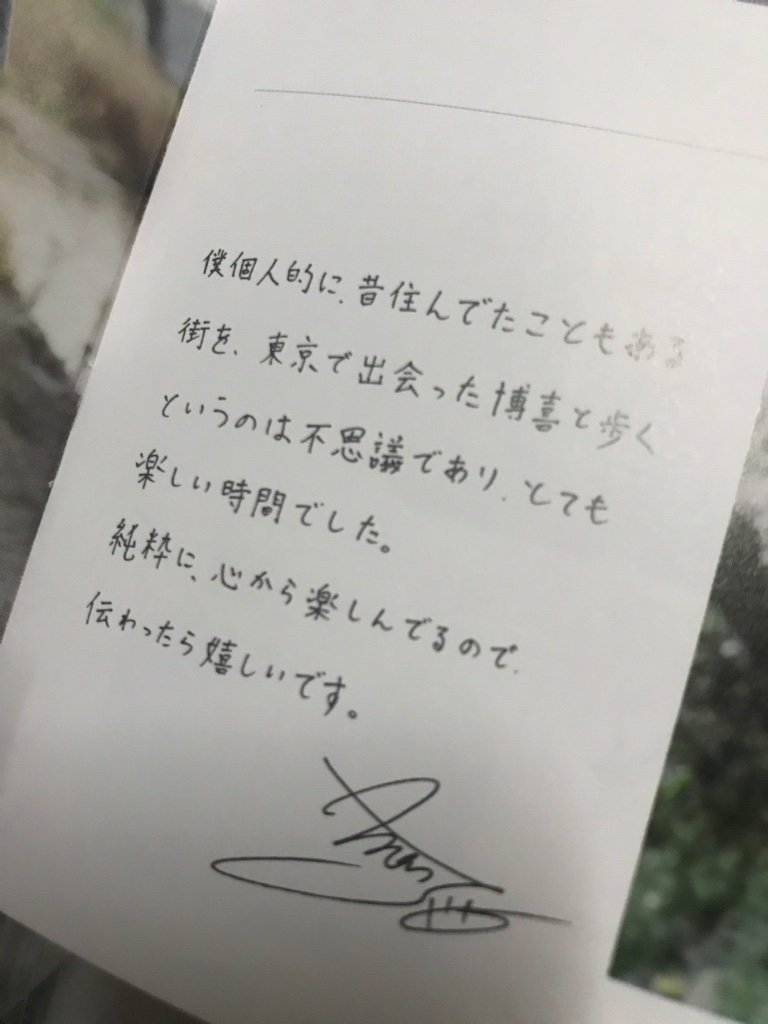 僕個人的に、昔住んでたこともある
街を、東京で出会った博喜と歩く
というのは不思議であり、とても
楽しい時間でした。
純粋に、心から楽しんでるので、
伝わったら嬉しいです。